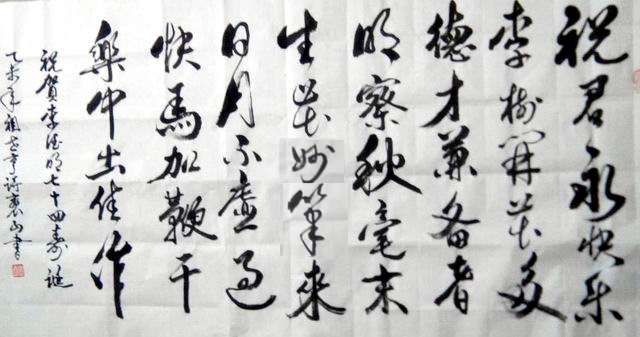 祝君永快乐
李树開花多
德才兼备者
明察秋毫末
生花妙筆来
日月不虚过
快馬加鞭干
樂中出佳作
祝賀李德明七十四寿誕
乙未年祖亭诗山書